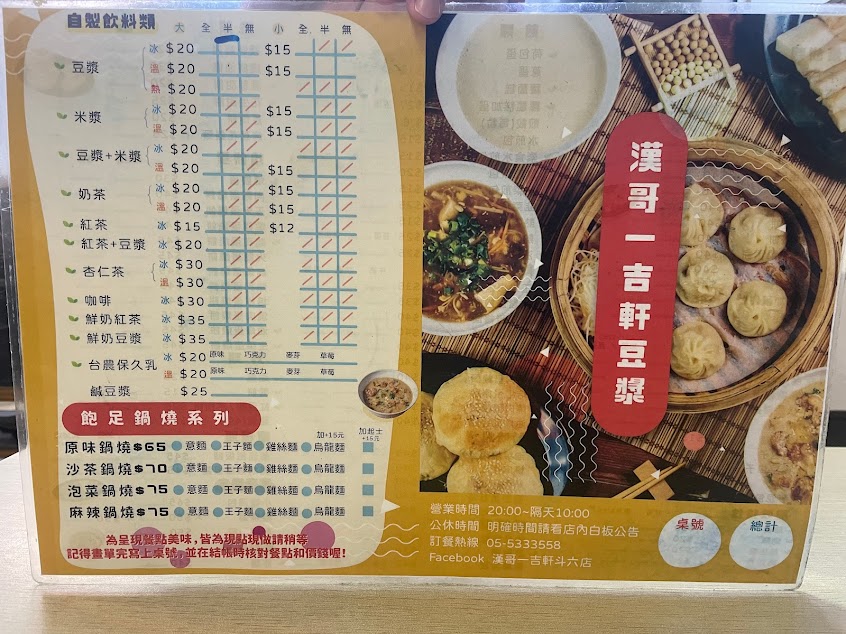 自製飲料類 大 全 半 無 小 全 半 無
豆漿 冰 $20 $15
溫 $20 $15
熱 $20
米漿 冰 $20 $15
溫 $20 $15
豆漿+米漿 冰 $20
溫 $20 $15
奶茶 冰 $20 $15
溫 $20 $15
紅茶 冰 $15 $12
紅茶+豆漿 冰 $20
杏仁茶 冰 $30
溫 $30
咖啡 冰 $30
鮮奶紅茶 冰 $35
鮮奶豆漿 冰 $35
台農保久乳 冰 $20 原味 巧克力 麥芽 草莓
溫 $20 原味 巧克力 麥芽 草莓
鹹豆漿 $25
飽足鍋燒系列
加+15元 加起士+15元
原味鍋燒$65 意麵 王子麵 雞絲麵 烏龍麵
沙茶鍋燒$70 意麵 王子麵 雞絲麵 烏龍麵
泡菜鍋燒$75 意麵 王子麵 雞絲麵 烏龍麵
麻辣鍋燒$75 意麵 王子麵 雞絲麵 烏龍麵
為呈現餐點美味,皆為現點現做請稍等
記得畫單完寫上桌號,並在結帳時核對餐點和價錢喔!
漢哥一吉軒豆漿
營業時間 20:00~隔天10:00
公休時間 明確時間請看店內白板公告
訂餐熱線 05-5333558
Facebook 漢哥一吉軒斗六店
桌號
總計